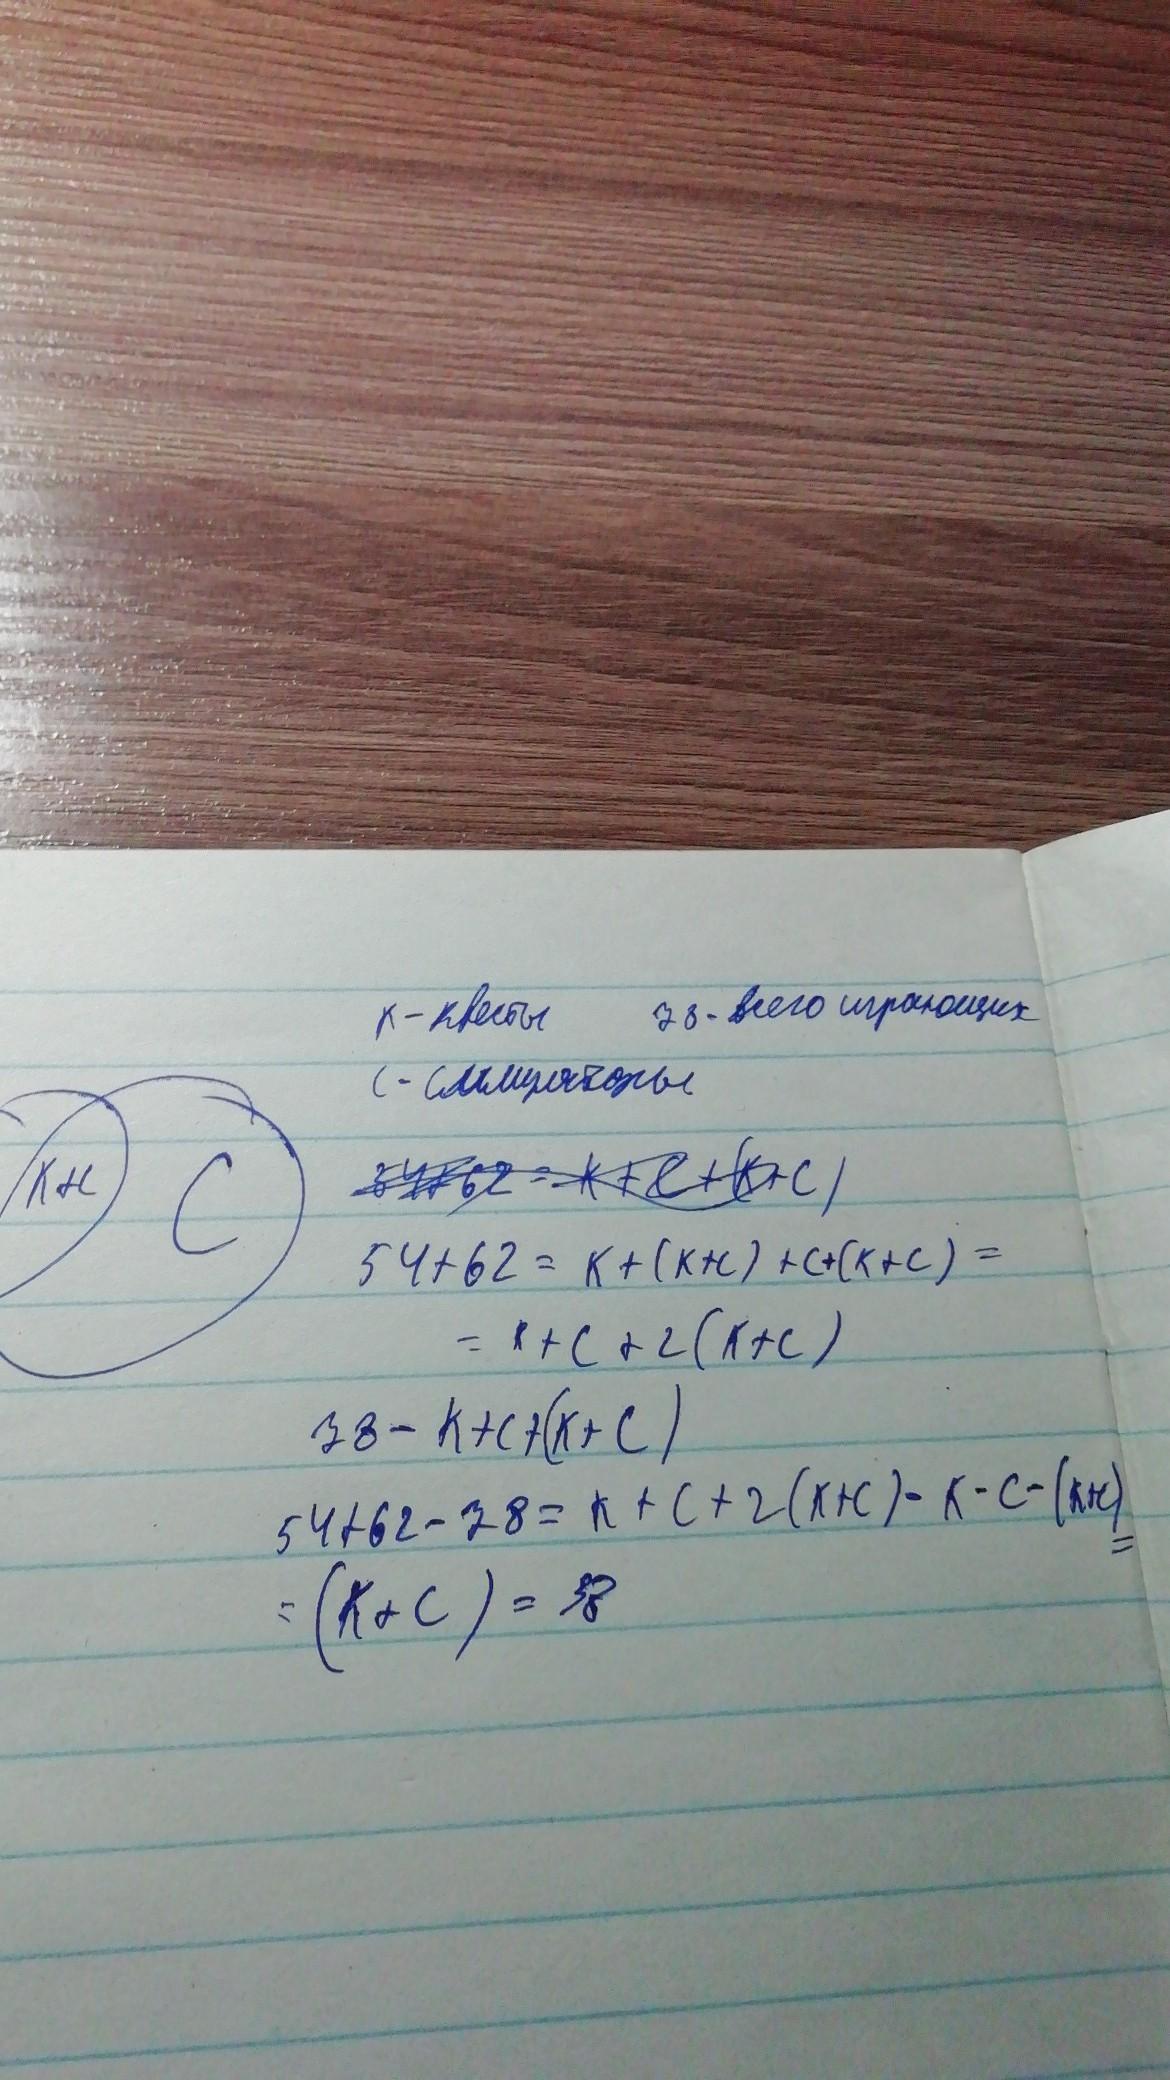 К - квесты 78 - всего играющих
С - Симуляторы
К+С С
54+62 = К + С + (К+С)
54+62 = К + (К+С) + С+(К+С) =
= К + С + 2(К+С)
78 - К+С+(К+С)
54+62-78 = К + С + 2(К+С) - К - С - (К+С)
=
= (К+С) = 38